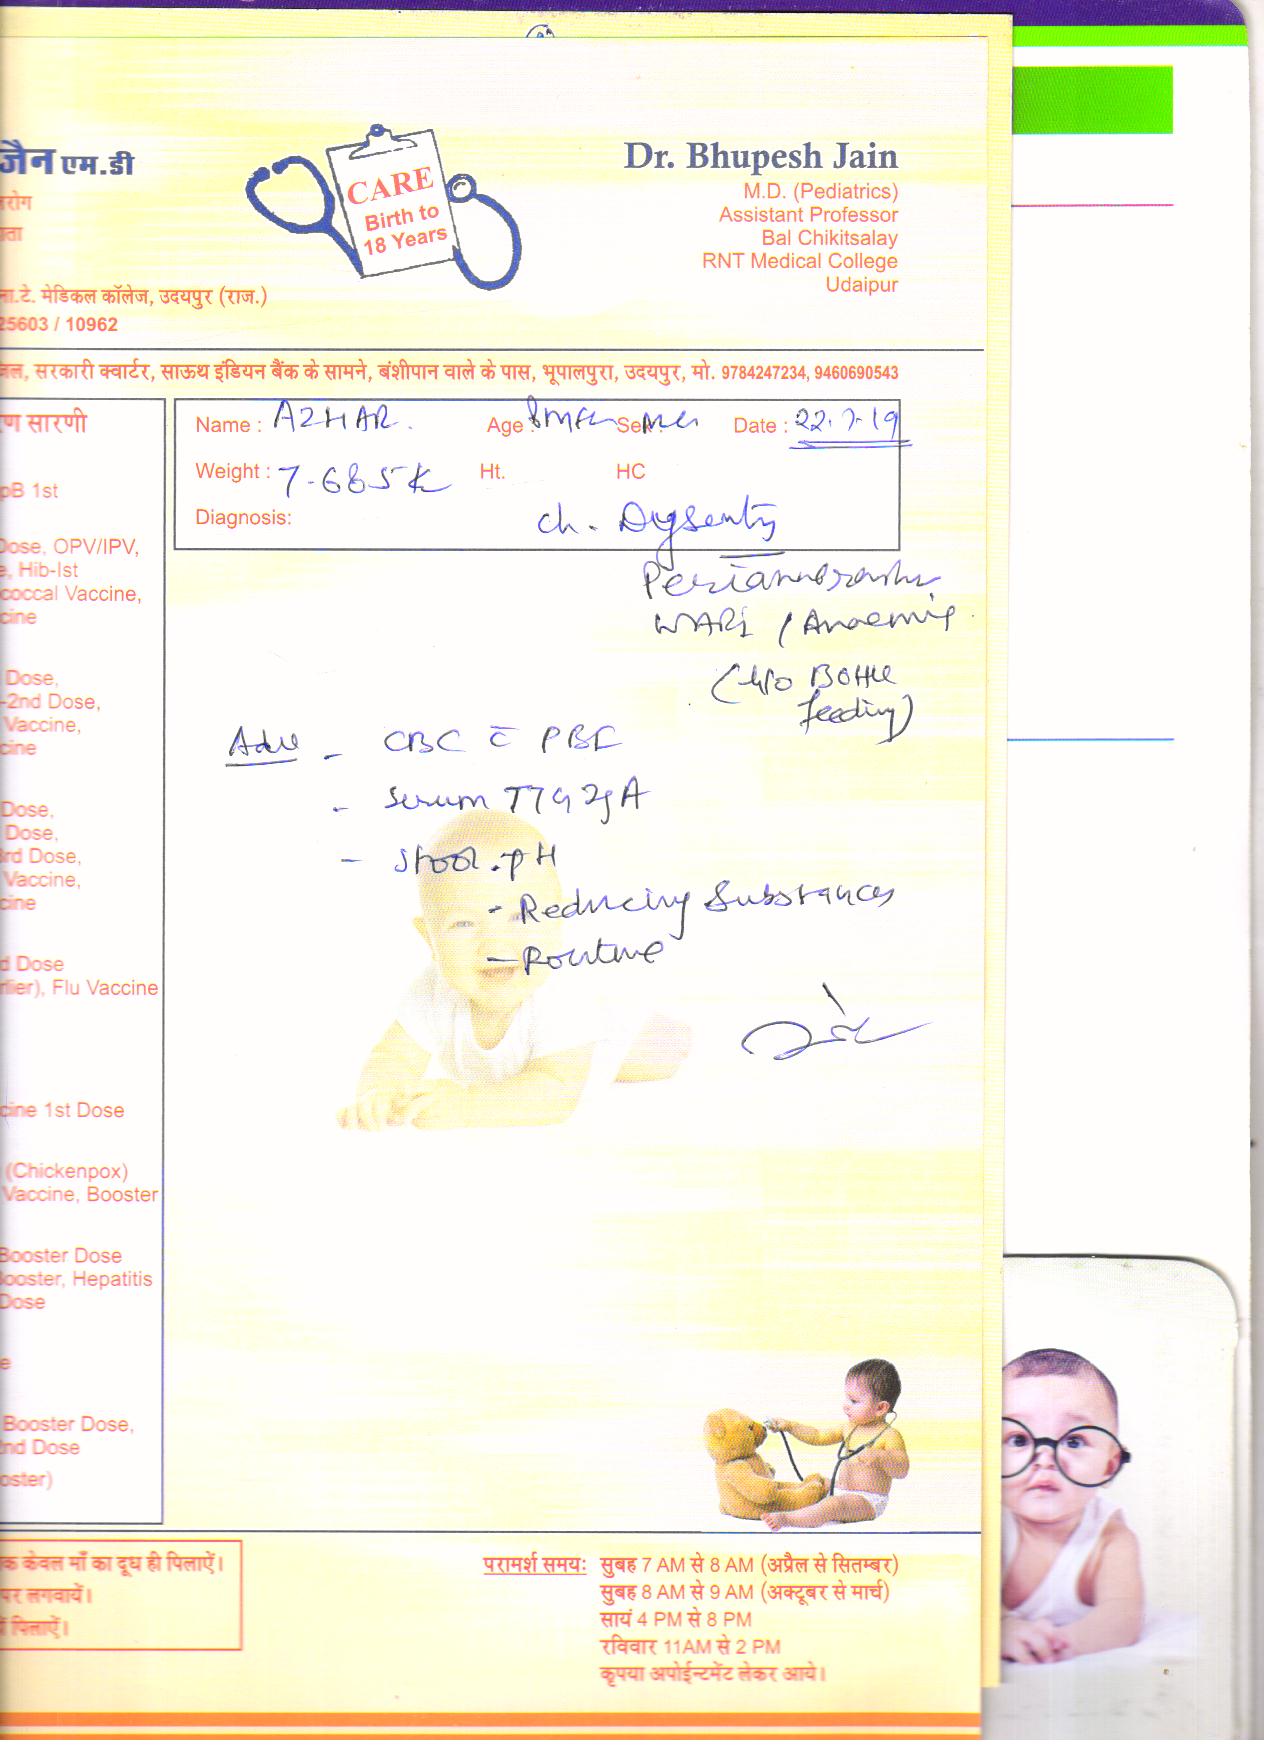 जैन एम.डी
CARE
Birth to
18 Years
Dr. Bhupesh Jain
M.D. (Pediatrics)
Assistant Professor
Bal Chikitsalay
RNT Medical College
Udaipur
मेडिकल कॉलेज, उदयपुर (राज.)
25603 / 10962
सरकारी क्वार्टर, साऊथ इंडियन बैंक के सामने, बंशीपान वाले के पास, भूपालपुरा, उदयपुर, मो. 9784247234, 9460690543
सारणी
Name : AZHAR. Age : Sex : Date : 22.7.19
Weight : 7.685 K Ht. HC
Diagnosis: ch. Dysentry
WARI / Anaemia
(H/o Bottle
feeding)
Adv - CBC c̄ PBF
- Serum TTG IgA
- Stool pH
- Reducing Substances
- Routine
pB 1st
Dose, OPV/IPV,
Hib-Ist
coccal Vaccine,
cine
Dose,
-2nd Dose,
Vaccine,
cine
Dose,
Dose,
3rd Dose,
Vaccine,
cine
d Dose
rlier), Flu Vaccine
cine 1st Dose
(Chickenpox)
Vaccine, Booster
Booster Dose
Booster, Hepatitis
Dose
Booster Dose,
2nd Dose
oster)
केवल माँ का दूध ही पिलाऐं।
पर लगवायें।
पिलाऐं।
परामर्श समयः सुबह 7 AM से 8 AM (अप्रैल से सितम्बर)
सुबह 8 AM से 9 AM (अक्टूबर से मार्च)
सायं 4 PM से 8 PM
रविवार 11AM से 2 PM
कृपया अपोईन्टमेंट लेकर आये।